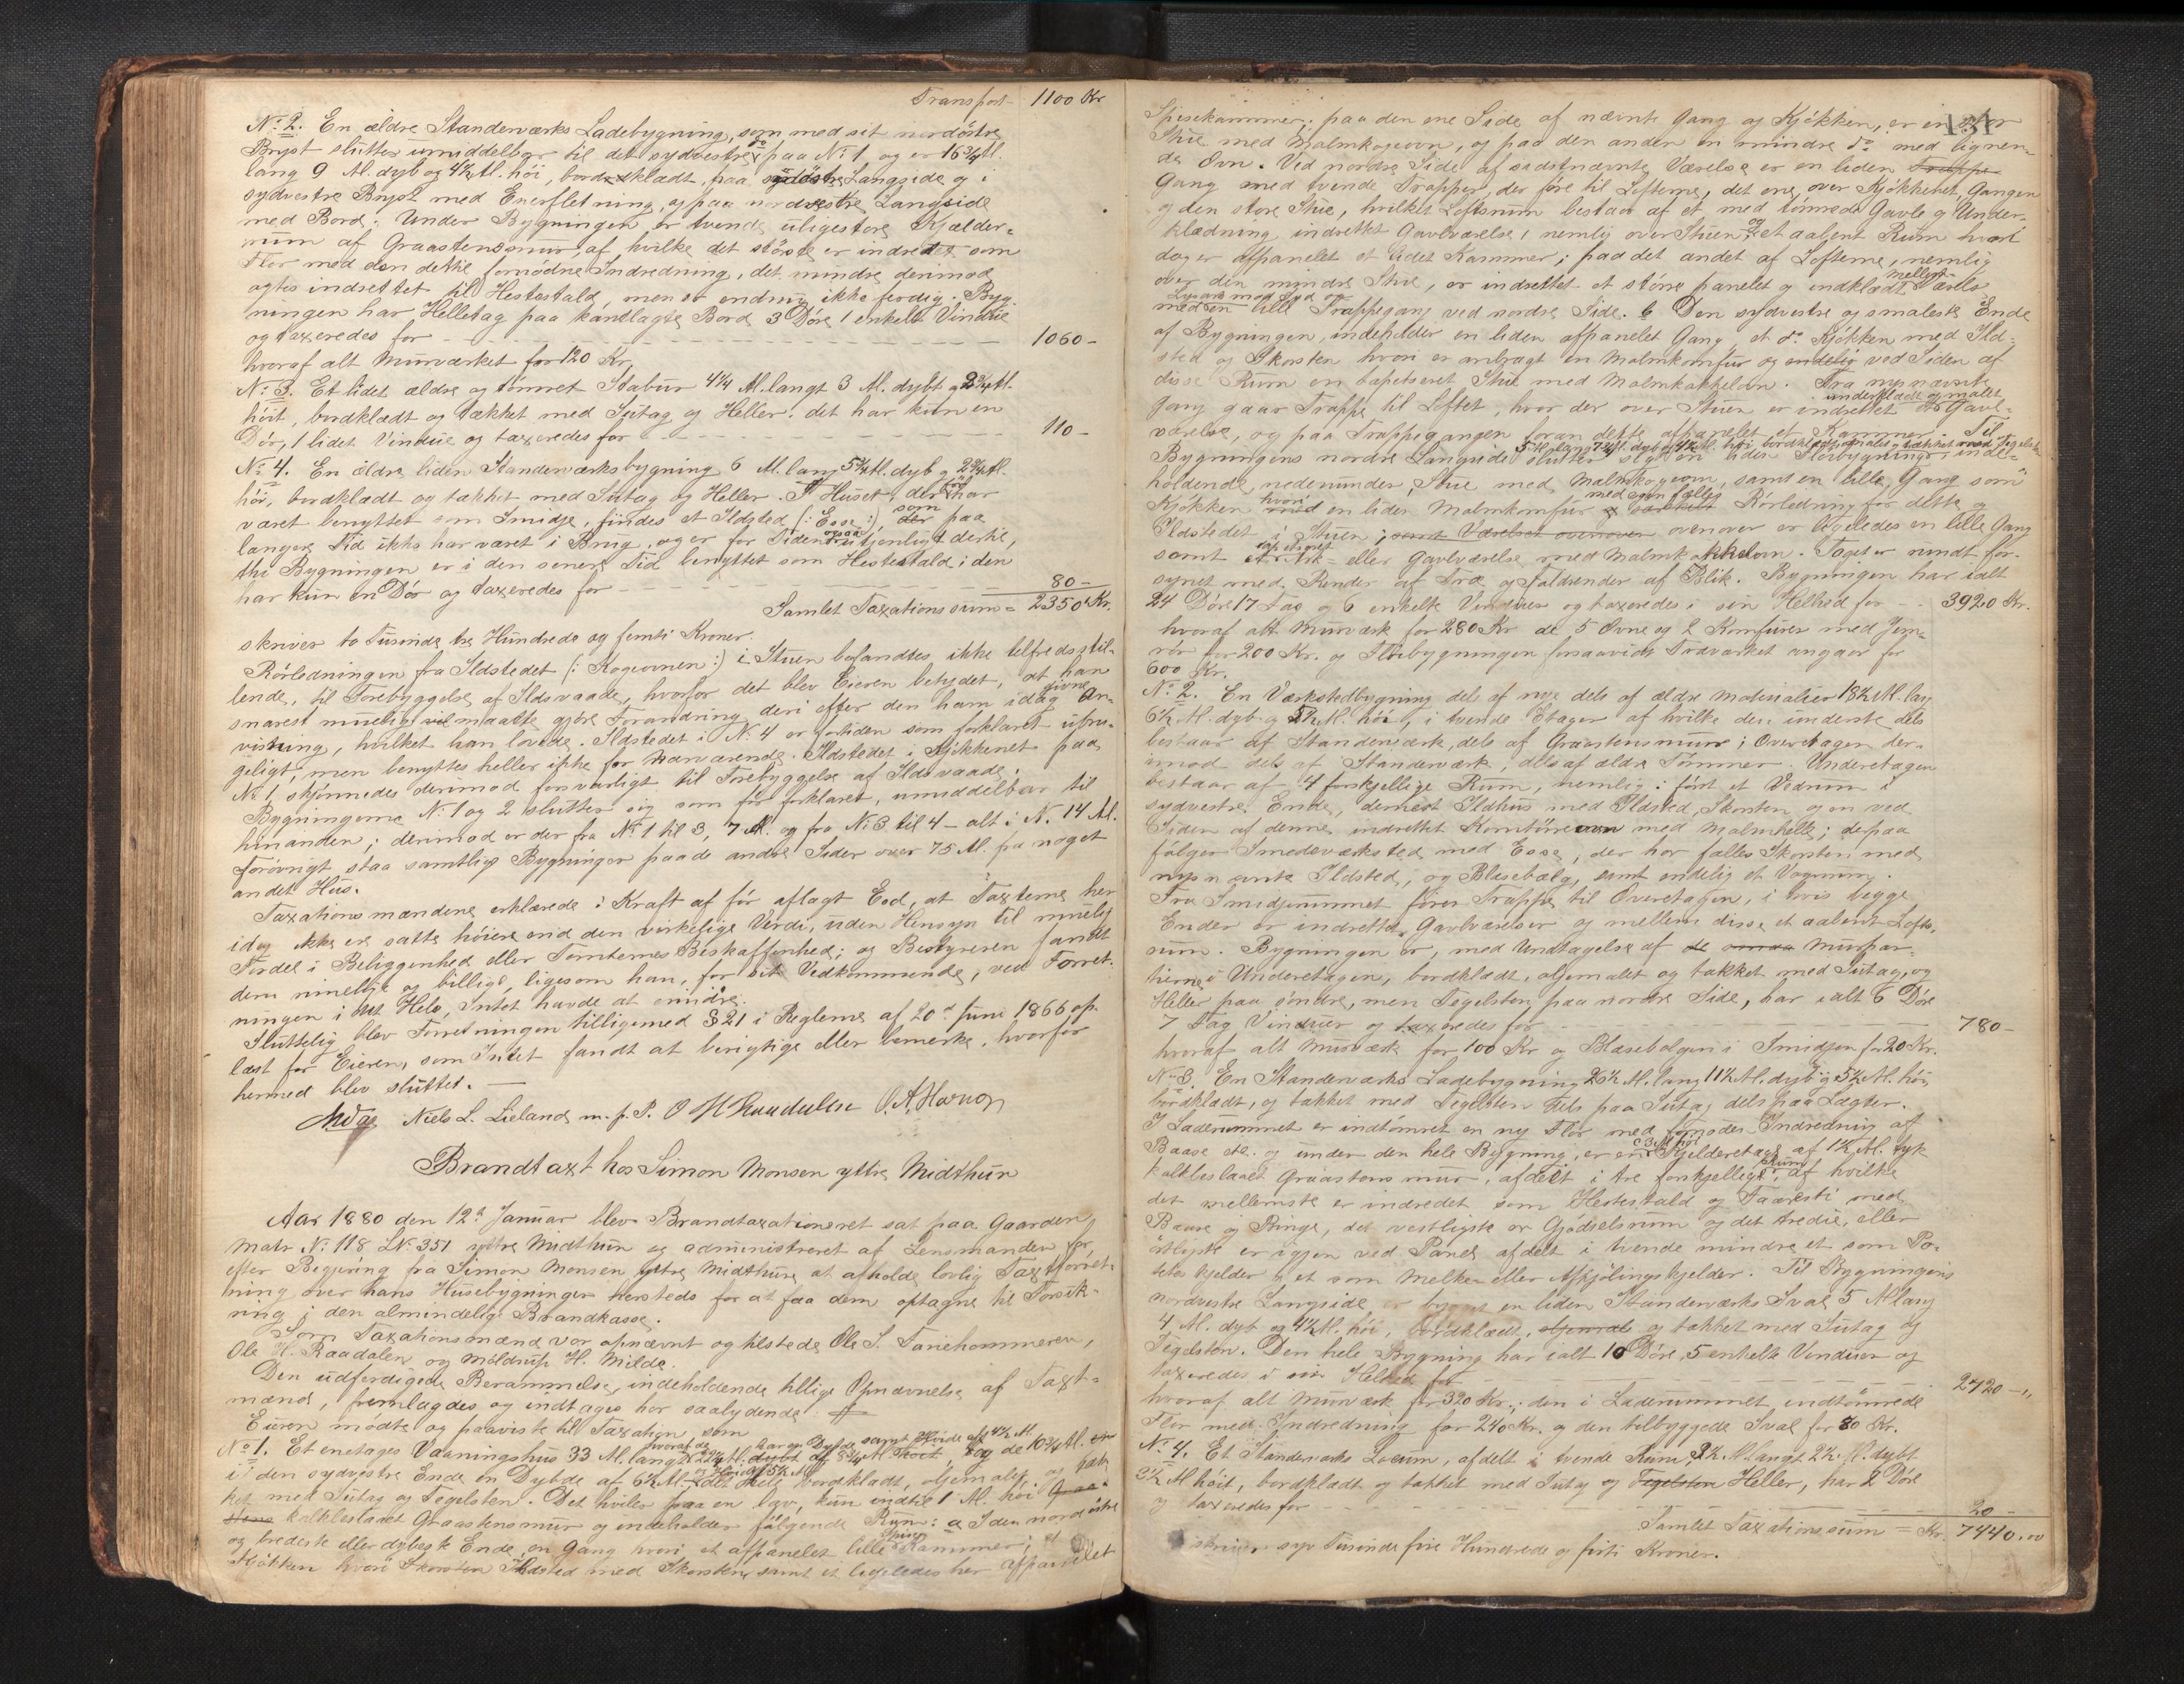 Transport - 1100 Kr
No 2. En ældre Standerværks Ladebygning, som med sit nordöstre
Bryst slutter umiddelbar til det sydvestre do paa No 1, og er 16 3/4 Al.
lang 9 Al. dyb og 4 1/2 Al. höi, bordklædt, paa sydöstre Langside og i
sydvestre Bryst med Enerfletning, og paa nordvestre Langside
med Bord. Under Bygningen er tvende uligestore Kjælder-
rum af Graastensmuur, af hvilke det störste er indredet som
Flor med den dertil fornödne Indredning, det mindre derimod
agtes indrettet til Hestestald, men er endnu ikke ferdig. Byg-
ningen har Helletag paa kantlagte Bord 3 Döre 1 enkelt Vindue
og taxeredes for 1060 -
hvoraf alt Murværket for 120 Kr.
No 3. Et lidet ældre og tömret Stabur 4 1/4 Al. langt 3 Al. dybt og 2 3/4 Al.
höit, bordklædt og tækket med Sutag og Heller. det har kun en
Dör, 1 lidet Vindue og taxeredes for 110 -
No 4. En ældre liden Standerværksbygning 6 Al. lang 5 3/4 Al. dyb og 2 3/4 Al.
höi, bordklædt og tækket med Sutag og Heller. I Huset, der för har
været benyttet som Smidje, findes et Ildsted (: Esse :), der som paa
længere Tid ikke har været i Brug, og er for Tiden ogsaa utjenligt dertil,
thi Bygningen er i den senere Tid benyttet som Hestestald; den
har kun en Dör og taxeredes for 80 -
Samlet Taxationssum = 2350 Kr.
skriver to Tusinde tre Hundrede og femti Kroner.
Rörledningen fra Ildstedet (: Kogeovnen :) i Stuen befandtes ikke tilfredsstil-
lende, til Forebyggelse af Ildsvaade, hvorfor det blev Eieren betydet, at han
snarest mueligt vil maatte gjöre Forandring deri efter den ham idag givne An-
visning, hvilket han lovede. Ildstedet i No 4 er fortiden som forklaret ubru-
geligt, men benyttes heller ikke for Nærværende. Ildstedet i Kjökkenet paa
No 1 skjönnedes derimod forsvarligt til Forebyggelse af Ildsvaade.
Bygningerne No 1 og 2 slutter sig som för forklaret, umiddelbar til
hinanden; derimod er der fra No 1 til 3, 7 Al. og fra No 3 til 4 - alt i N. 14 Al.
Forövrigt staa samtlige Bygninger paa de andre Sider over 75 Al. fra noget
andet Hus.
Taxationsmændene erklærede i Kraft af för aflagt Eed, at Taxterne her
idag ikke er satte höiere end den virkelige Verdi, uden Hensyn til muelig
Fordel i Beliggenhed eller Tomternes Beskaffenhed; og Bestyreren fandt
dem rimelige og billige, ligesom han, for sit Vedkommende, ved Forret-
ningen i det Hele, Intet havde at erindre.
Sluttelig blev Forretningen tilligemed § 21 i Reglerne af 20de Juni 1866 op-
læst for Eieren, som Intet fandt at berigtige eller bemerke, hvorfor
hermed blev sluttet. -
Niels L. Lieland m. p. P. O H Raadalen
Brandtaxt hos Simon Monsen yttre Midthun
Aar 1880 den 12te Januar blev Brandtaxationsret sat paa Gaarden
Matr No 118 LNo 351 yttre Midthun og administreret af Lensmanden, for
efter Begjæring fra Simon Monsen yttre Midthun, at afholde lovlig Taxtforret-
ning over hans Husebygninger hersteds for at faa dem optagne til Forsik-
ring i den almindelige Brandkasse.
Som Taxationsmænd var opnævnt og tilstede Ole S. Fanehammeren,
Ole H. Raadalen og Möldrup H. Milde.
Den udferdigede Berammelse, indeholdende tillige Opnævnelse af Taxt-
mænd, fremlagdes og indtages her saalydende
Eieren mödte og paaviste til Taxation som
No 1. Et enetages Vaaningshus 33 Al. langt hvoraf de 22 1/4 Al. har en Dybde af 8 3/4 Al. samt Höide af 4 1/2 Al. og de 10 3/4 Al.
i den sydvestre Ende en Dybde af 6 1/2 Al. og Höide af 5 1/2 Al. det Hele bordklædt, oljemalet og tæk-
ket med Sutag og Tegelsten. Det hviler paa en lav, kun indtil 1 Al. höi Graa-
stens kalkbeslaaet Graastensmuur og indeholder fölgende Rum: a I den nordöstre
og bredeste eller dybeste Ende, en Gang hvori et afpanelet lille Spisekammer; et
Kjökken hvori Skorsten Ildsted med Skorsten, samt et ligeledes her afpanelet
Spisekammer; paa den ene Side af nævnte Gang og Kjökken, er en större
Stue med Malmkogeovn, og paa den anden en mindre do med lignen-
de Ovn. Ved nordre Side af sidstnævnte Værelse er en liden Trappe
Gang med tvende Trapper, der före til Lofterne, det ene, over Kjökkenet, Gangen
og den store Stue, hvilket Loftsrum bestaar af et med tömrede Gavle og Under-
klædning indrettet Gavlværelse, nemlig over Stuen, og et aabent Rum hvori
dog er afpanelet et lidet Kammer; paa det andet af Lofterne, nemlig
over den mindre Stue, er indrettet et större panelet og indklædt mellem Værelse
med en lille Trappegang ved nordre Side. b Den sydvestre og smaleste Ende
af Bygningen, indeholder en liden afpanelet Gang, et do Kjökken med Ild-
sted og Skorsten hvori er anbragt en Malmkomfur og endelig ved Siden af
disse Rum en tapetseret Stue med Malmkakkelovn. Fra nysnævnte
Gang gaar Trappe til Loftet, hvor der over Stuen er indrettet et underklædt og malet Gavl-
værelse, og paa Trappegangen foran dette afpanelet et Kammer. Til
Bygningens nordre Langside slutter sig en liden Flöibygning, inde-
5 Al. lang 7 1/4 Al. dyb og 4 1/2 Al. höi bordklædt, malet og tækket med Tegelsten
holdende nedenunder, Stue med Malmkogeovn, samt en lille Gang som
Kjökken hvori en liden Malmkomfur med egen fælles Rörledning for dette og
Ildstedet i Stuen; samt Værelset ovenover ovenover er ligeledes en lille Gang
samt et Ark- eller Gavlværelse med Malmkakkelovn. Taget er rundt for-
synet med Render af Træ og Faldrender af Blik. Bygningen har ialt
24 Döre 17 Fag og 6 enkelte Vinduer og taxeredes i sin Helhed for 3920 Kr.
hvoraf alt Murværk for 280 Kr de 5 Ovne og 2 Komfurer med Jern-
rör for 200 Kr. og Flöibygningen forsaavidt Træværket angaar for
600 Kr.
No 2. En Værkstedbygning dels af nye dels af ældre Materialier 18 1/2 Al. lang
6 1/2 Al. dyb og 5 1/2 Al. höi, i tvende Etager af hvilke den underste dels
bestaar af Standerværk, dels af Graastensmuur; Overetagen der-
imod dels af Standerværk, dels af ældre Tömmer. Underetagen
bestaar af 4 forskjellige Rum, nemlig: först et Vedrum i
sydvestre Ende, dernæst Ildhus med Ildsted, Skorsten og en ved
Siden af denne indrettet Korntörreovn med Malmhelle; derpaa
fölger Smedeværksted med Esse, der har fælles Skorsten med
nysnævnte Ildsted, og Blæsebælg, samt endelig et Vognrum.
Fra Smidjerummet förer Trappe til Overetagen, i hvis begge
Ender er indrettet Gavlværelser og mellem disse et aabent Lofts-
rum. Bygningen er, med Undtagelse af de Murpar-
tierne i Underetagen, bordklædt, oljemalet og tækket med Sutag og
Heller paa söndre, men Tegelsten paa nordre Side, har ialt 6 Döre
7 Fag Vinduer og taxeredes for 780 -
hvoraf alt Murværk for 100 Kr og Blæsebælgen i Smidjen for 20 Kr.
No 3. En Standerværks Ladebygning 26 1/2 Al. lang 11 1/2 Al. dyb og 5 1/2 Al. höi,
bordklædt, og tækket med Tegelsten dels paa Sutag dels paa Lægter.
I Laderummet er indtömret en ny Flor med fornöden Indredning af
Baase etc. og under den hele Bygning, er en c 3 Al. höi Kjelderetage af 1 1/2 Al. tyk
kalkbeslaaet Graastensmuur, afdelt i tre forskjellige Rum, af hvilke
det mellemste er indredet som Hestestald og Faaresti med
Baase og Binge, det vestligste er Gjödselsrum og det tredie, eller
östligste er igjen ved Panel afdelt i tvende mindre, et som Po-
tetes kjelder og et som Melke- eller Afkjölingskjelder. Til Bygningens
nordvestre Langside er bygget en liden Standerværks Sval 5 Al. lang
4 Al. dyb og 4 1/2 Al. höi, bordklædt, oljemalt og tækket med Sutag og
Tegelsten. Den hele Bygning har ialt 10 Döre, 5 enkelte Vinduer og
taxeredes i sin Helhed for 2720 - "
hvoraf alt Murværk for 320 Kr.; den i Laderummet indtömrede
Flor med Indredning for 240 Kr. og den tilbyggede Sval for 80 Kr.
No 4. Et Standerværks Locum, afdelt i tvende Rum, 3 1/2 Al. langt 2 1/2 Al. dybt
2 1/2 Al höit, bordklædt og tækket med Sutag og Tegelsten Heller, har 2 Döre
og taxeredes for 20 -
Samlet Taxationssum = Kr. 7440,00
skriver syv Tusinde fire Hundrede og firti Kroner.